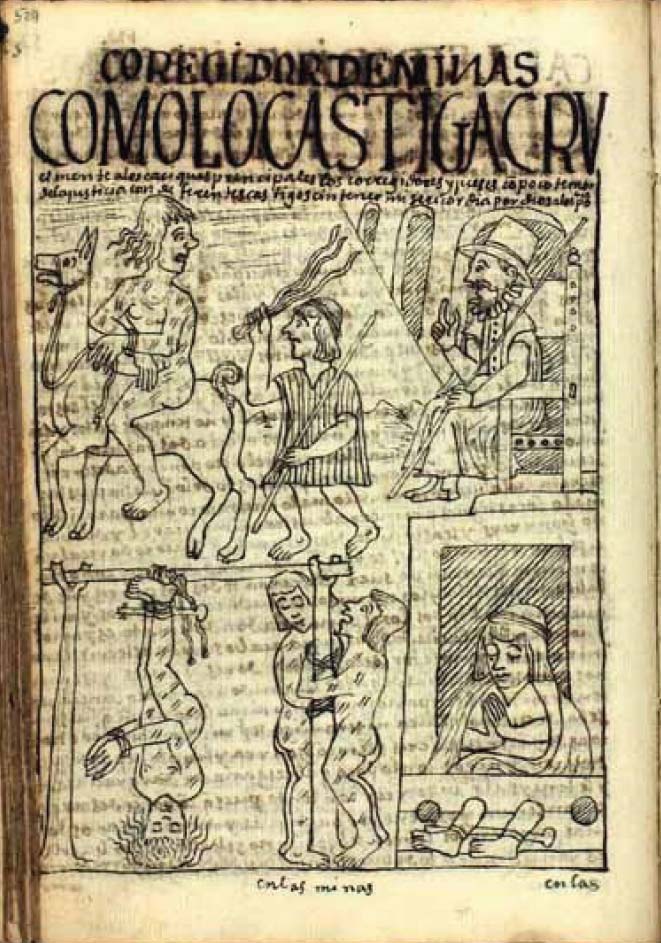 529
COREGIDOR DE MINAS
COMO LO CASTIGA CRV
elmente a los caciques prencipales los corregidores y jueses cō poco temor
de la justicia con deferentes castigos cin tener por dios a los
en las minas
en las